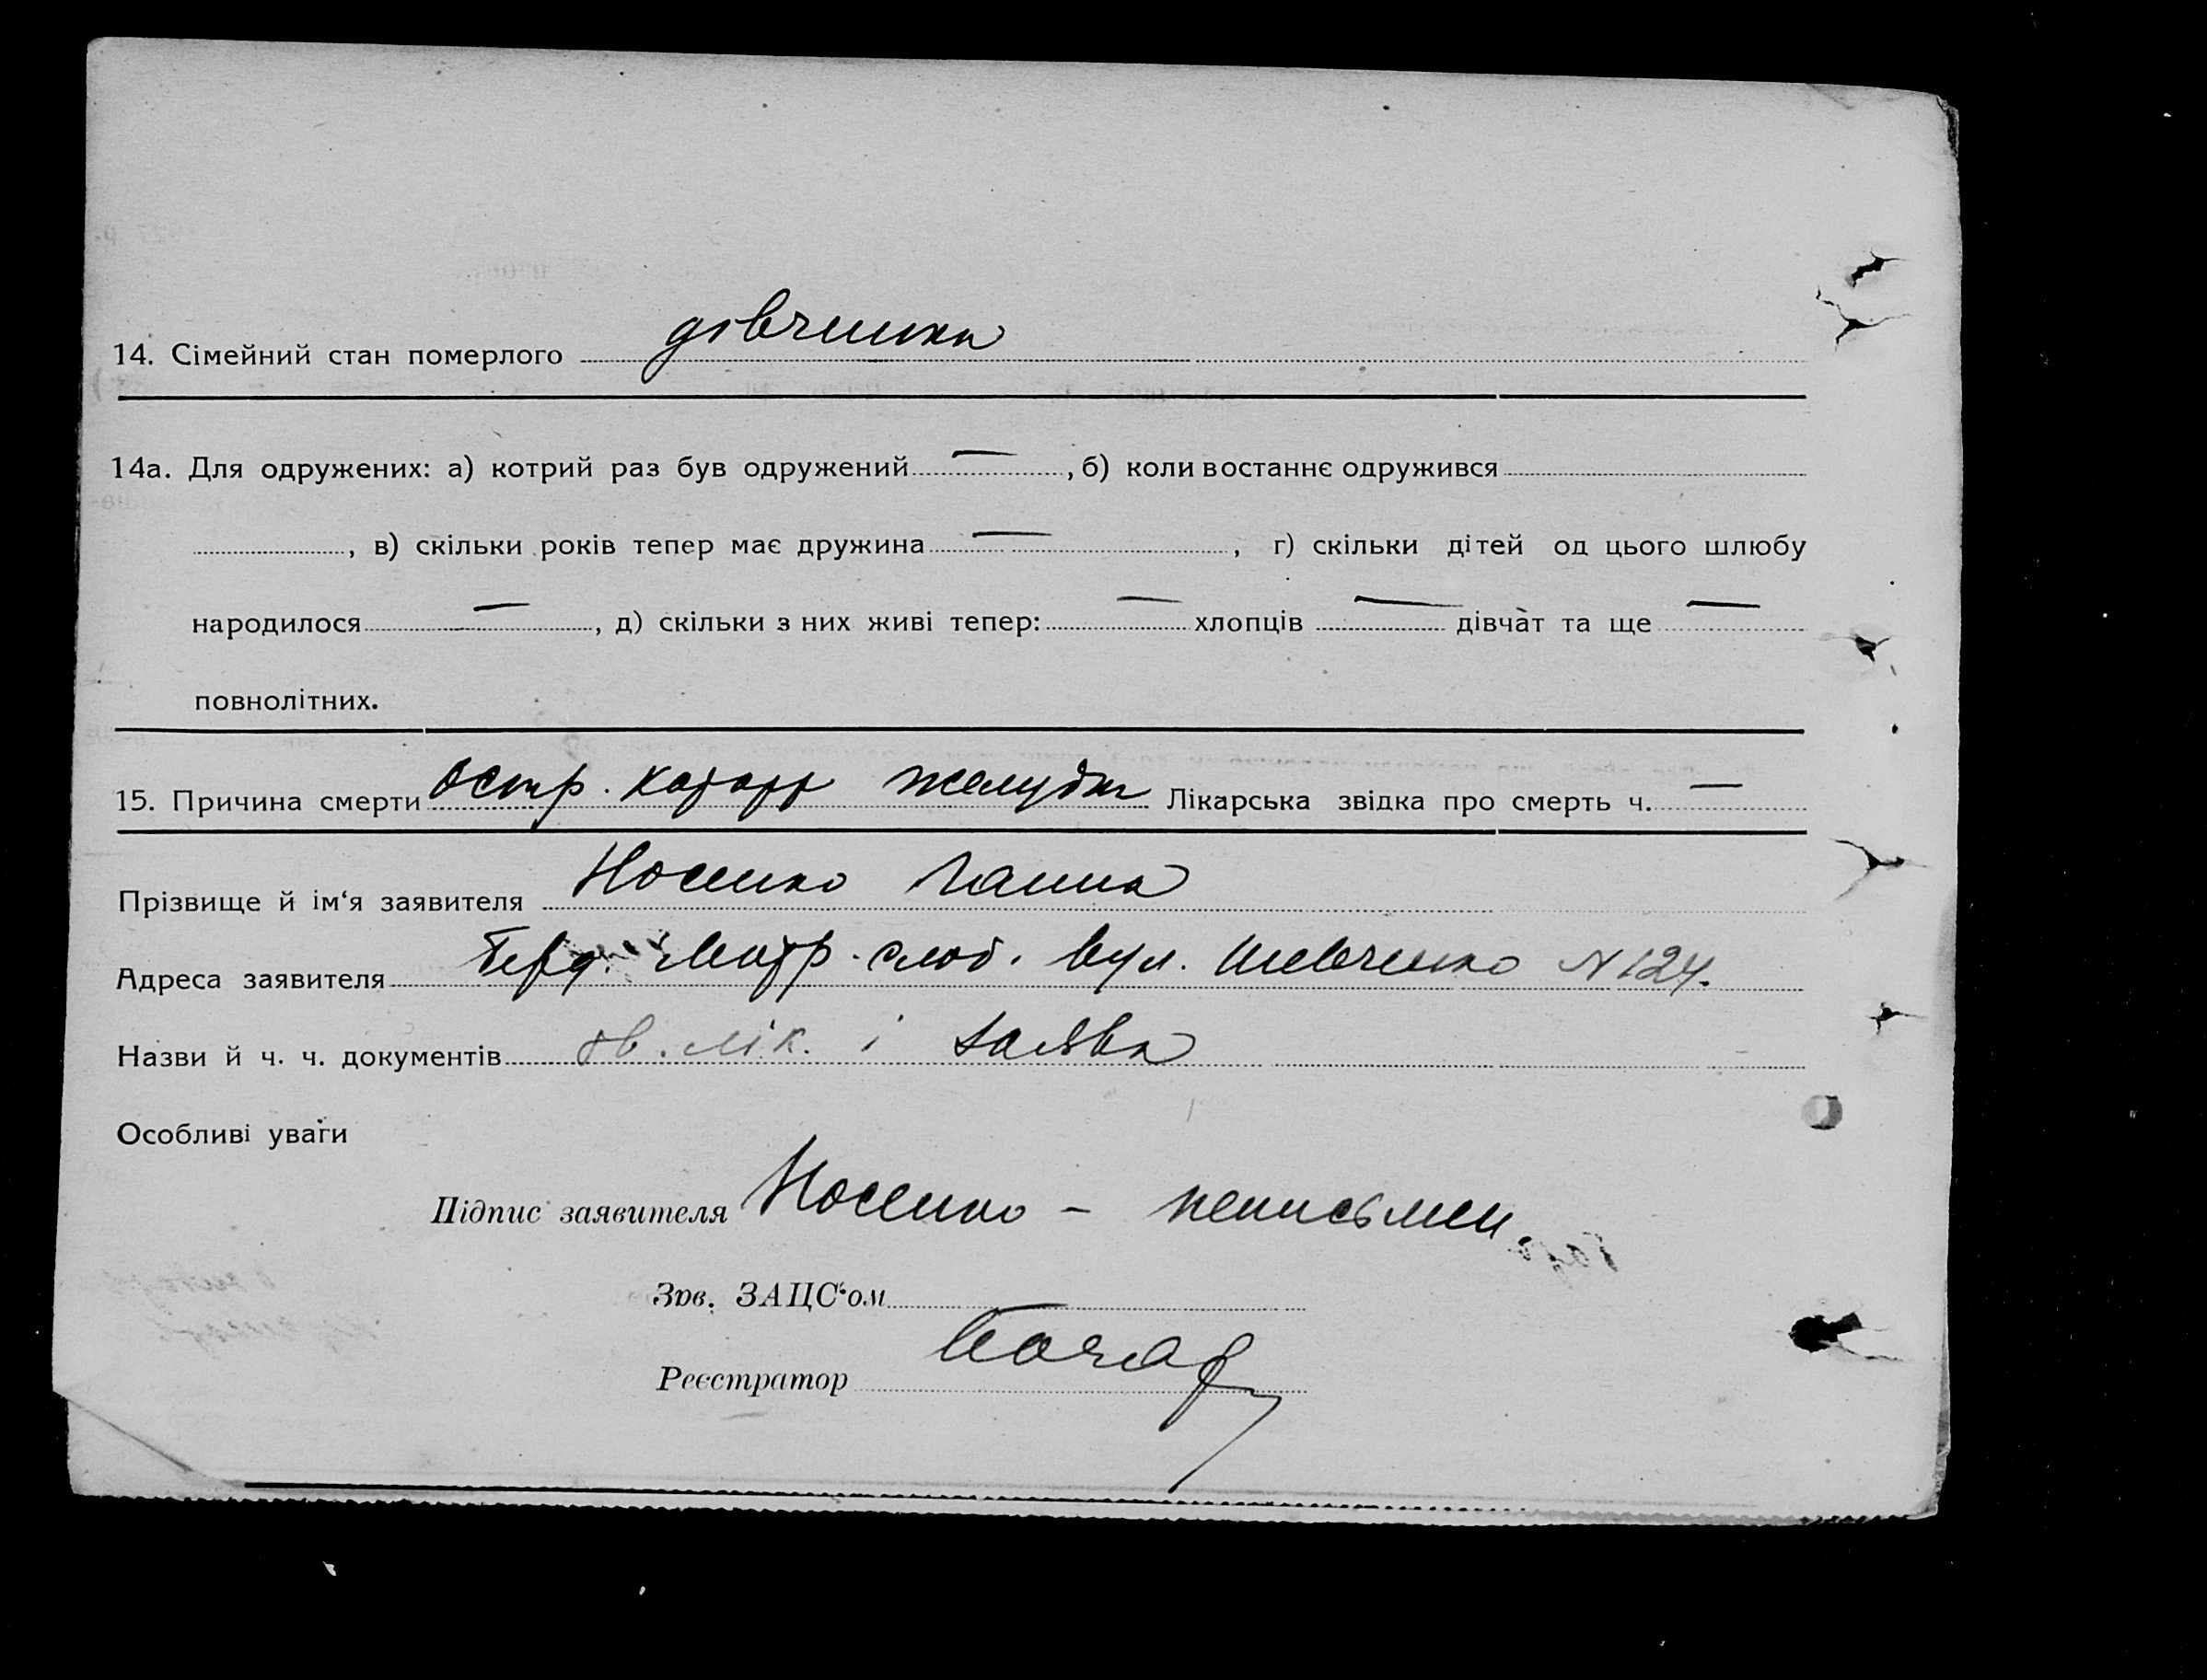 14. Сімейний стан померлого дівчинка
14а. Для одружених: а) котрий раз був одружений — , б) коли востаннє одружився
, в) скільки років тепер має дружина — , г) скільки дітей од цього шлюбу
народилося — , д) скільки з них живі тепер: — хлопців — дівчат та ще —
повнолітних.
15. Причина смерти Остр. катарр желудка Лікарська звідка про смерть ч. —
Прізвище й ім‘я заявителя Носенко Ганна
Адреса заявителя Берд. Матр. слоб. вул. Шевченко N 124.
Назви й ч. ч. документів лік. і заява
Особливі уваги
Підпис заявителя Носенко – неписьмен.
Зав. ЗАЦС‘ом
Реєстратор